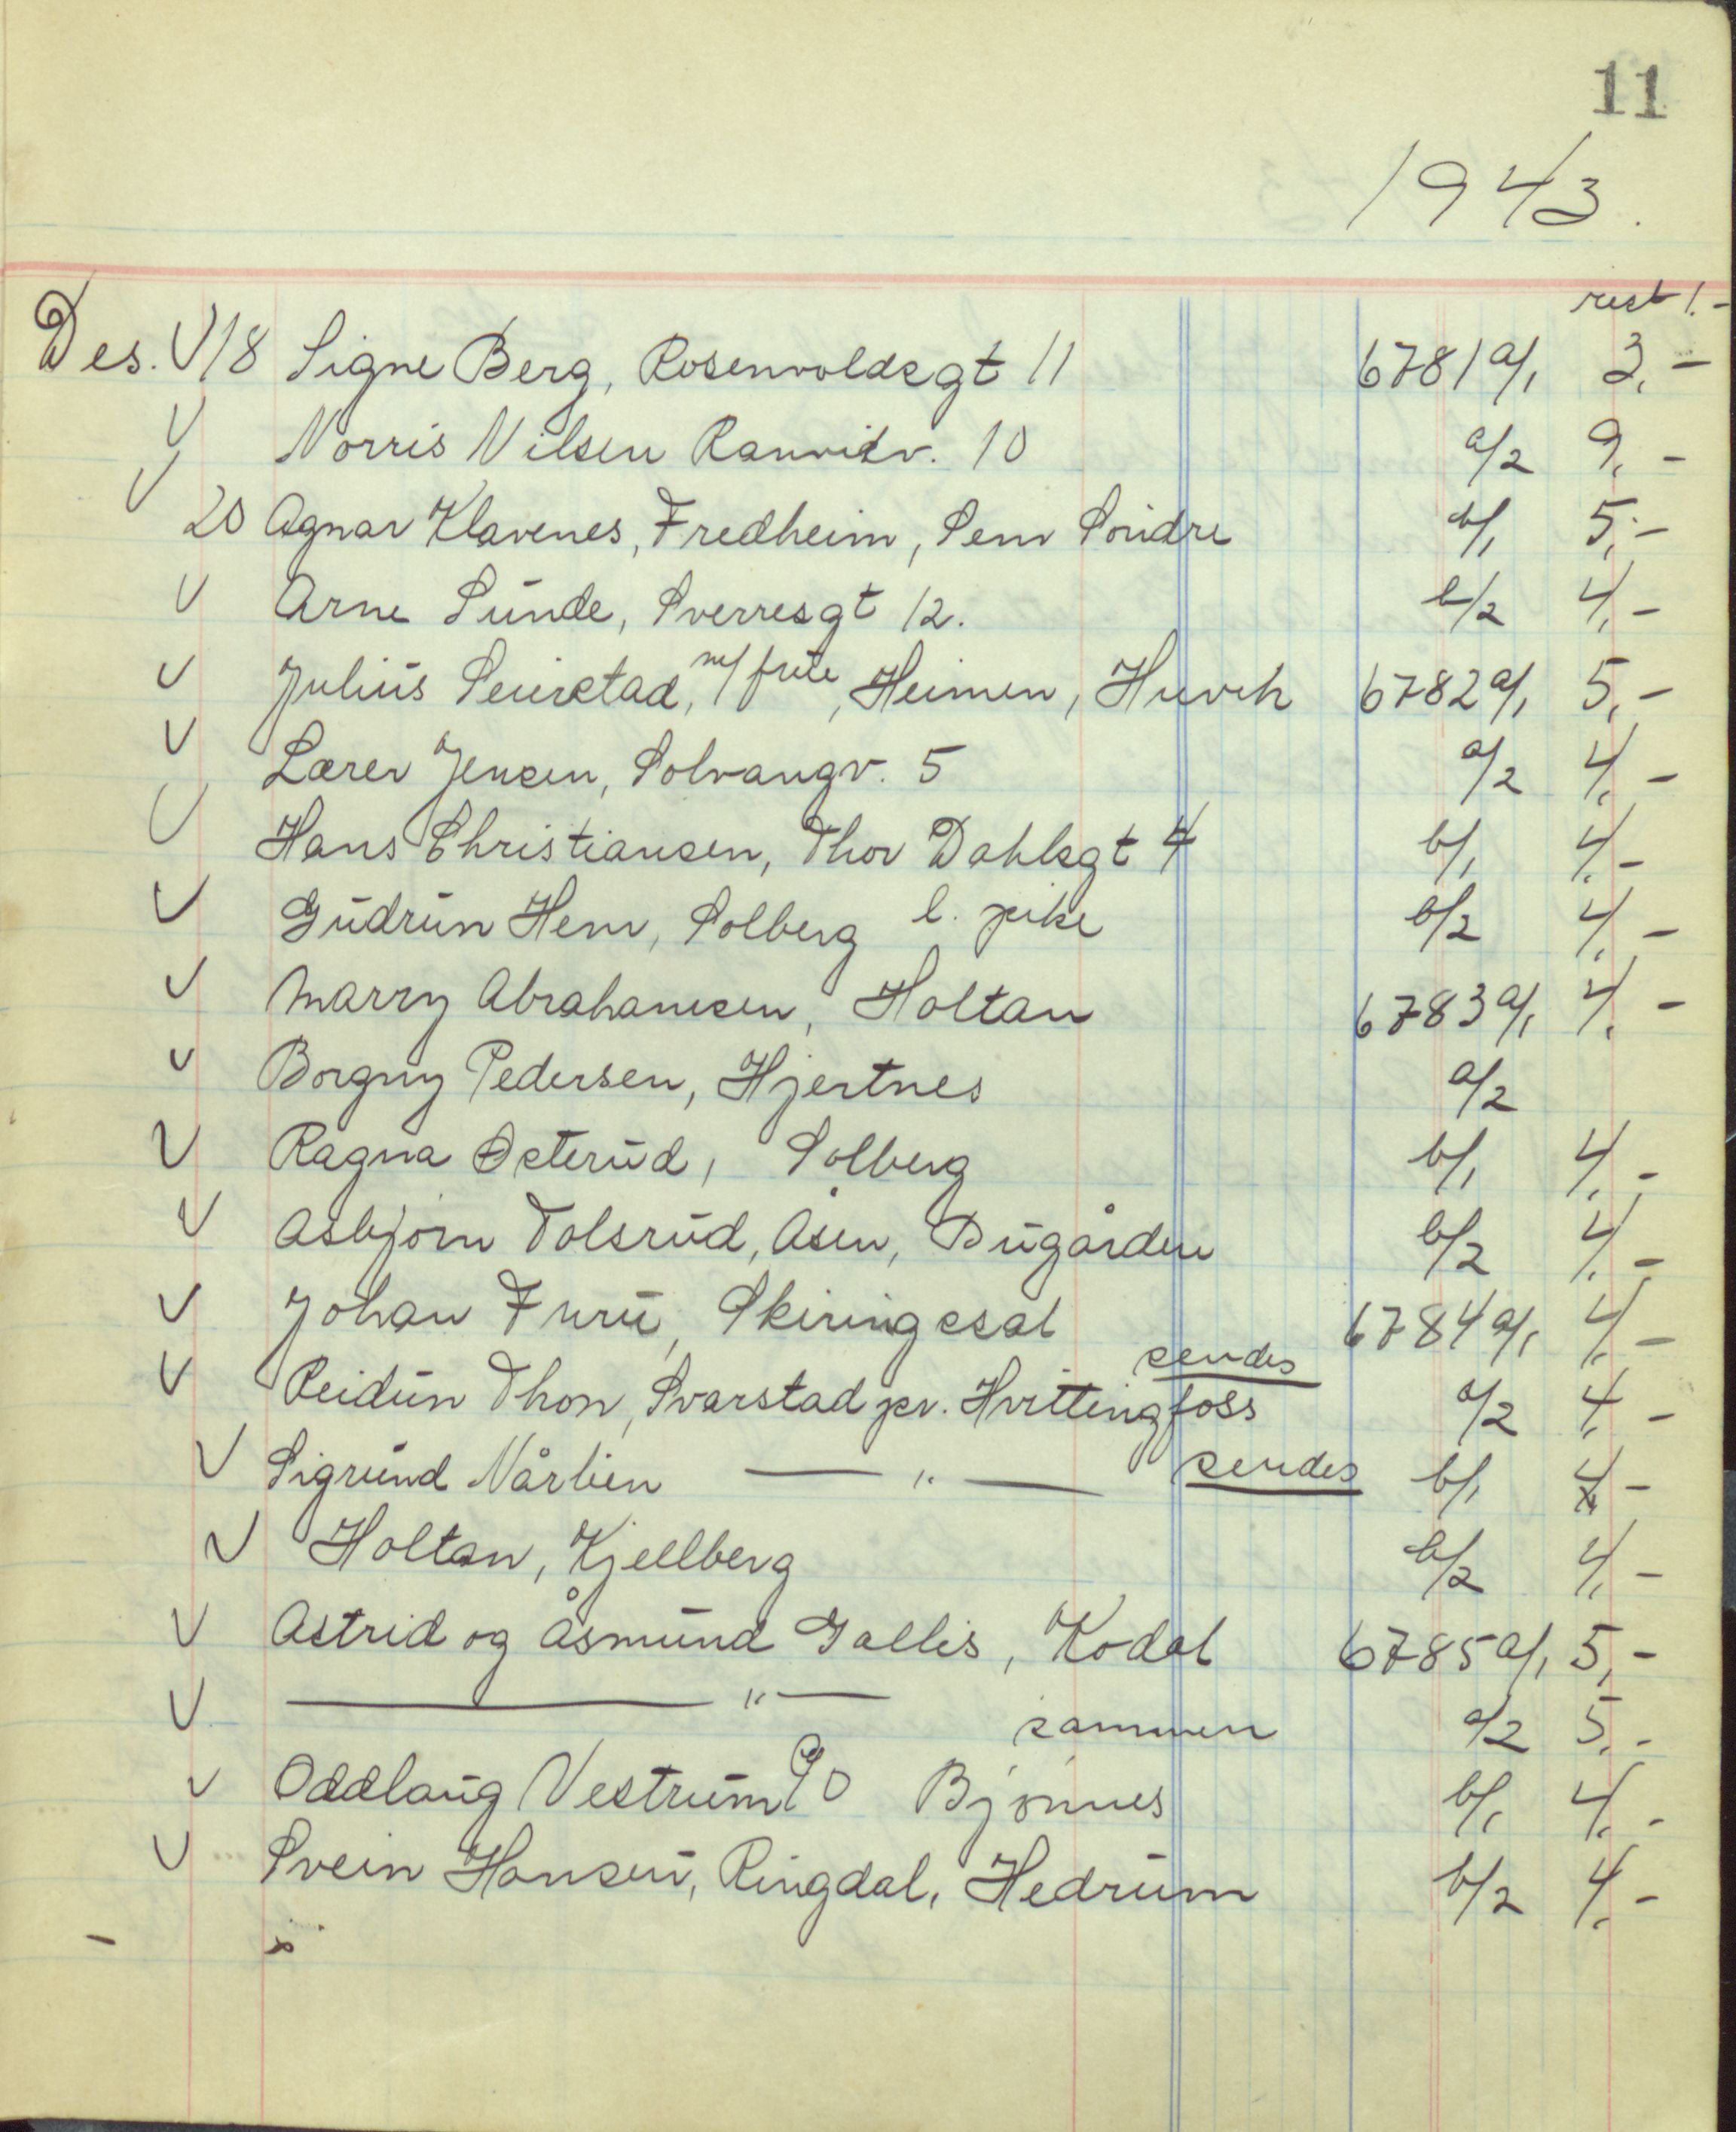 11
1943.
rest 1.-
Des. V 18 Signe Berg, Rosenvoldsgt 11 6781 a/1 3,-
V Norris Nilsen Ranvidv. 10 a/2 9,-
V 20 Agnar Klavenes, Fredheim, Sem Söndre b/1 5,-
V Arne Sunde, Sverresgt 12. b/2 4,-
V Julius Seierstad, m/ frue, Heimen, Huvik 6782 a/1 5,-
V Lærer Jensen, Solvangv. 5 a/2 4,-
V Hans Christiansen, Thor Dahlsgt 4 b/1 4,-
V Gudrun Hem, Solberg l. pike b/2 4,-
V Marry Abrahamsen, Holtan 6783 a/1 4,-
V Borgny Pedersen, Hjertnes a/2
V Ragna Østerud, Solberg b/1 4,-
V Asbjørn Tolsrud, Åsen, Bugården b/2 4,-
V Johan Furu, Skiringssal 6784 a/1 4,-
sendes
V Reidun Thon, Svarstad pr. Hvittingfoss a/2 4,-
V Sigrund Nårlien — " — sendes b/1 4,-
V Holtan, Kjellberg b/2 4,-
V Astrid og Åsmund Gallis, Kodal 6785 a/1 5,-
V — " — sammen a/2 5,-
V Oddlaug Vestrum Bjønnes b/1 4,-
V Svein Hansen, Ringdal, Hedrum b/2 4,-